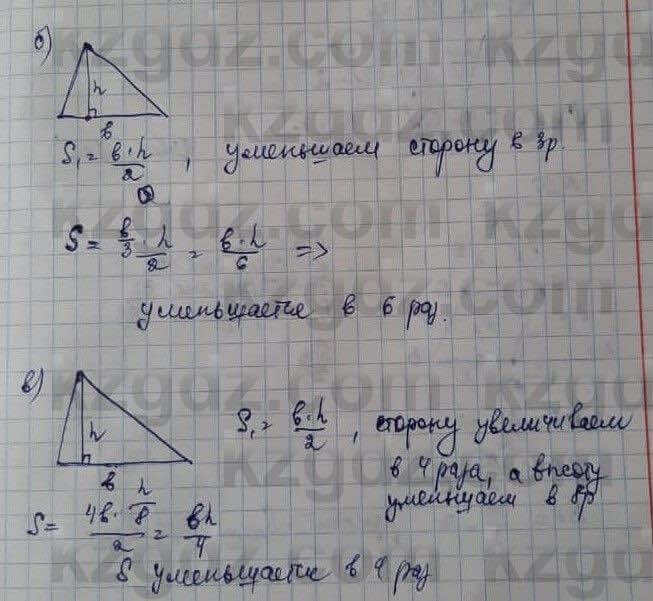 б)
h
в
S₁ = в·h/2 , уменьшаем сторону в 3р.
S = в/3·h/2 = в·h/6 =>
уменьшается в 6 раз.
в)
h
в
S₁ = в·h/2 , сторону увеличиваем
в 4 раза, а высоту
уменшаем в 8р
S = 4в·h/8/2 = вh/4
S уменьшается в 4 раз
kzgdz.com